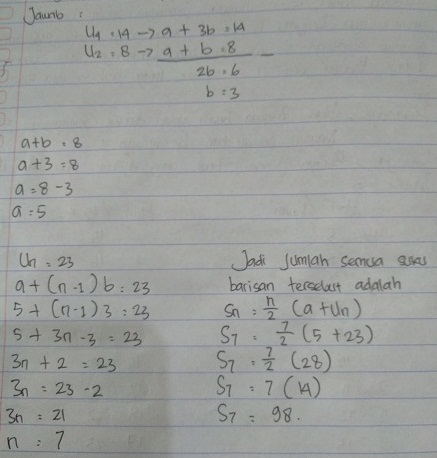 Jawab :
U4 = 14 → a + 3b = 14
U2 = 8 → a + b = 8 –
2b = 6
b = 3
a+b = 8
a+3 = 8
a = 8 - 3
a = 5
Un = 23
a + (n-1) b = 23
5 + (n-1) 3 = 23
5 + 3n - 3 = 23
3n + 2 = 23
3n = 23 - 2
3n = 21
n = 7
Jadi jumlah semua suku
barisan tersebut adalah
Sn = n/2 (a + Un)
S7 = 7/2 (5 + 23)
S7 = 7/2 (28)
S7 = 7 (14)
S7 = 98.